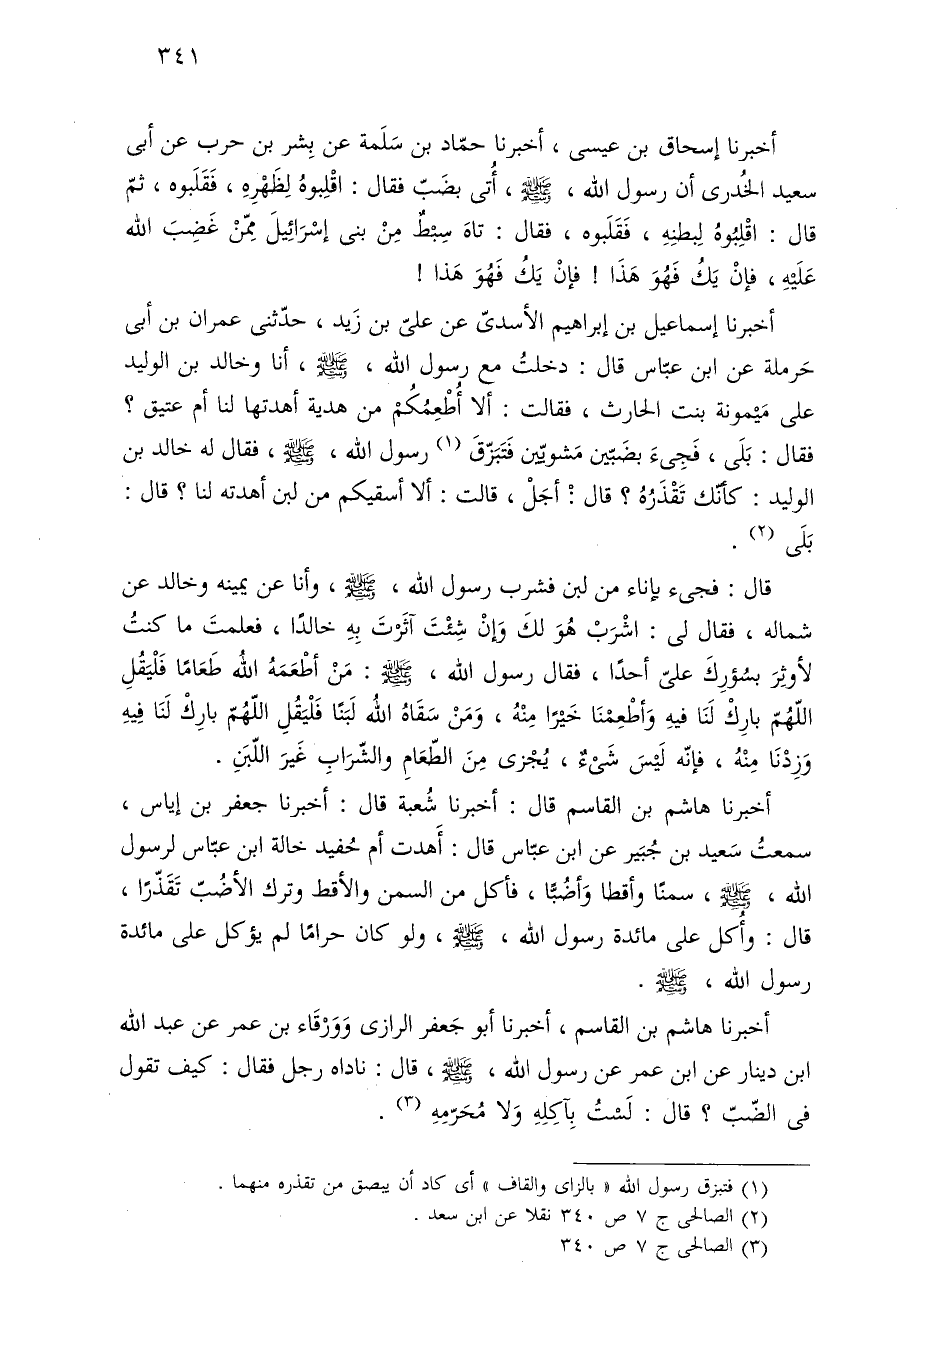 ٣٤١
أخبرنا إسحاق بن عيسى ، أخبرنا حمّاد بن سَلَمة عن بِشر بن حرب عن أبى
سعيد الخُدرى أن رسول الله ، ﷺ ، أُتى بضَبّ فقال : اقْلِبوهُ لِظَهْرِهِ ، فَقَلَبوه ، ثمّ
قال : اقْلِبُوهُ لِبطنِهِ ، فَقَلَبوه ، فقال : تاهَ سِبْطٌ مِنْ بنى إسْرَائِيلَ مِمّنْ غَضِبَ الله
عَلَيْهِ ، فإنْ يَكُ فَهُوَ هَذَا ! فإنْ يَكُ فَهُوَ هَذا !
أخبرنا إسماعيل بن إبراهيم الأسدىّ عن علىّ بن زَيد ، حدّثنى عمران بن أبى
حَرملة عن ابن عبّاس قال : دخلتُ مع رسول الله ، ﷺ ، أنا وخالد بن الوليد
على مَيْمونة بنت الحارث ، فقالت : ألا أُطْعِمُكُمْ من هدية أهدتها لنا أم عتيق ؟
فقال : بَلَى ، فَجِىءَ بضَبّين مَشويّين فَتَبَزّقَ (١) رسول الله ، ﷺ ، فقال له خالد بن
الوليد : كأنّك تَقْذَرُهُ ؟ قال : أجَلْ ، قالت : ألا أسقيكم من لبن أهدته لنا ؟ قال :
بَلَى (٢) .
قال : فجىء بإناء من لبن فشرب رسول الله ، ﷺ ، وأنا عن يمينه وخالد عن
شماله ، فقال لى : اشْرَبْ هُوَ لكَ وَإنْ شِئْتَ آثَرْتَ بِهِ خالدًا ، فعلمتَ ما كنتُ
لأوثِرَ بسُؤرِكَ علىّ أحدًا ، فقال رسول الله ، ﷺ : مَنْ أطْعَمَهُ اللهُ طَعَامًا فَلْيَقُلِ
اللّهُمّ بارِكْ لَنَا فيهِ وَأطْعِمْنَا خَيْرًا مِنْهُ ، وَمَنْ سَقَاهُ اللهُ لَبَنًا فَلْيَقُلِ اللّهُمّ بارِكْ لَنَا فِيهِ
وَزِدْنَا مِنْهُ ، فإنّه لَيْسَ شَىْءٌ ، يُجْزى مِنَ الطّعَامِ والشّرَابِ غَيرَ اللّبَنِ .
أخبرنا هاشم بن القاسم قال : أخبرنا شُعبة قال : أخبرنا جعفر بن إياس ،
سمعتُ سَعيد بن جُبَير عن ابن عبّاس قال : أَهدت أم حُفيد خالة ابن عبّاس لرسول
الله ، ﷺ ، سمنًا وأقطا وَأضُبًّا ، فأكل من السمن والأقط وترك الأضُبّ تَقَذّرًا ،
قال : وأُكل على مائدة رسول الله ، ﷺ ، ولو كان حرامًا لم يؤكل على مائدة
رسول الله ، ﷺ .
أخبرنا هاشم بن القاسم ، أخبرنا أبو جَعفر الرازى وَوَرْقَاء بن عمر عن عبد الله
ابن دينار عن ابن عمر عن رسول الله ، ﷺ ، قال : ناداه رجل فقال : كيف تقول
فى الضّبّ ؟ قال : لَسْتُ بِآكِلِهِ وَلا مُحَرّمِهِ (٣) .
(١) فتبزق رسول الله « بالزاى والقاف » أى كاد أن يبصق من تقذره منهما .
(٢) الصالحى ج ٧ ص ٣٤٠ نقلا عن ابن سعد .
(٣) الصالحى ج ٧ ص ٣٤٠